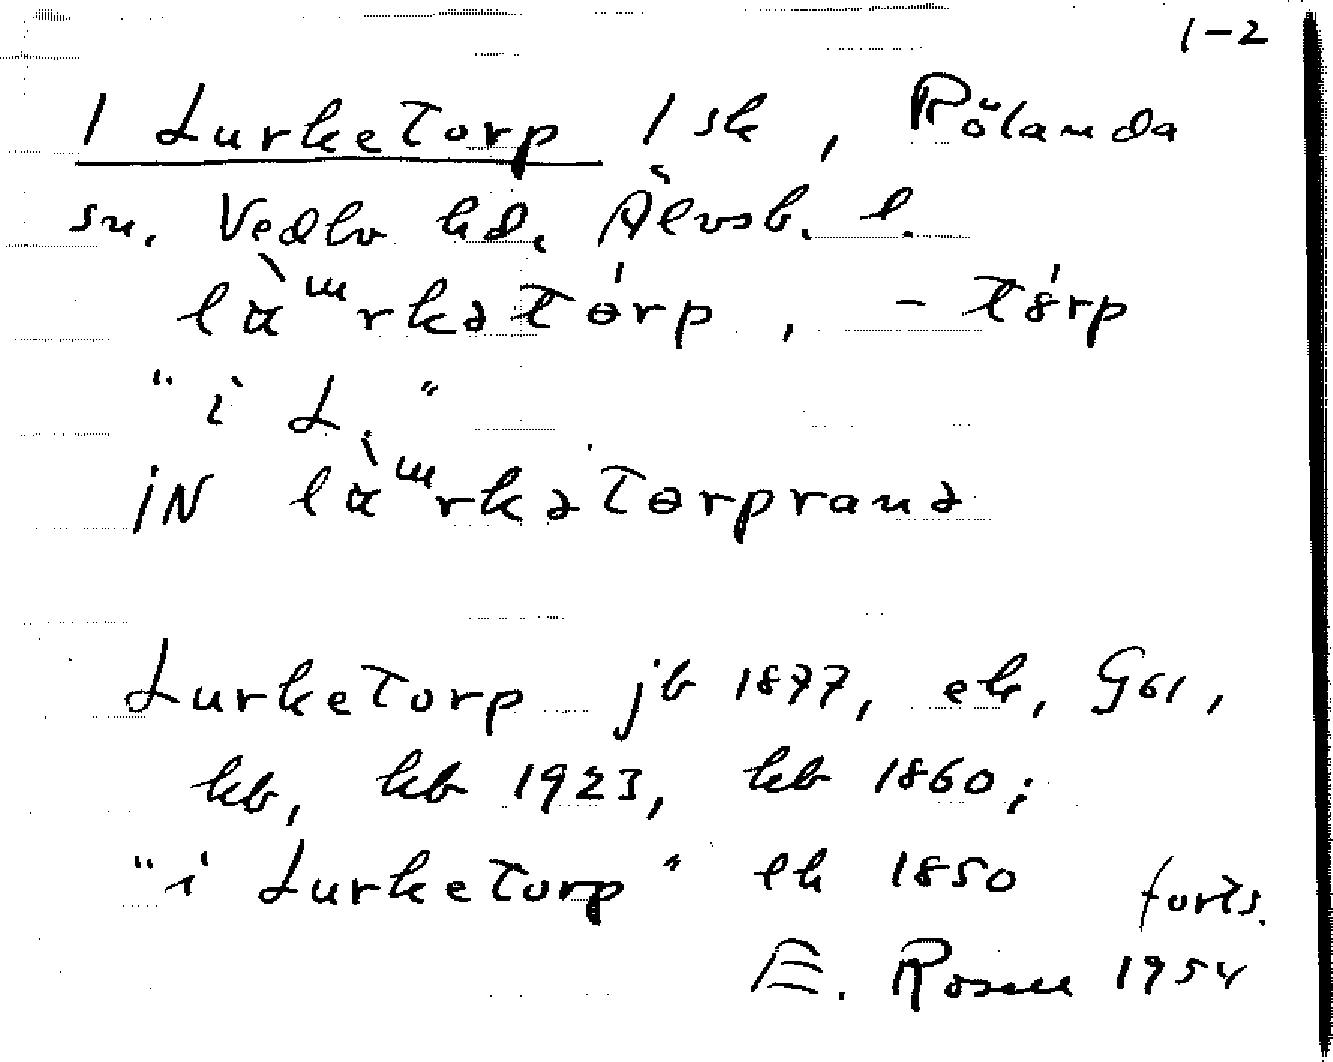 1-2
1 Lurketorp 1 sk, Rölanda
sn. Vedbo hd. Älvsb. l.
lɯ̀rkətɵ́rp, -tȣ́rp
"i L."
iN lɯ̀rkətɵrpranə
Lurketorp jb 1877, ek, Gsl,
kb, kb 1923, kb 1860;
"i Lurketorp" ek 1850 forts.
E. Rosell 1954